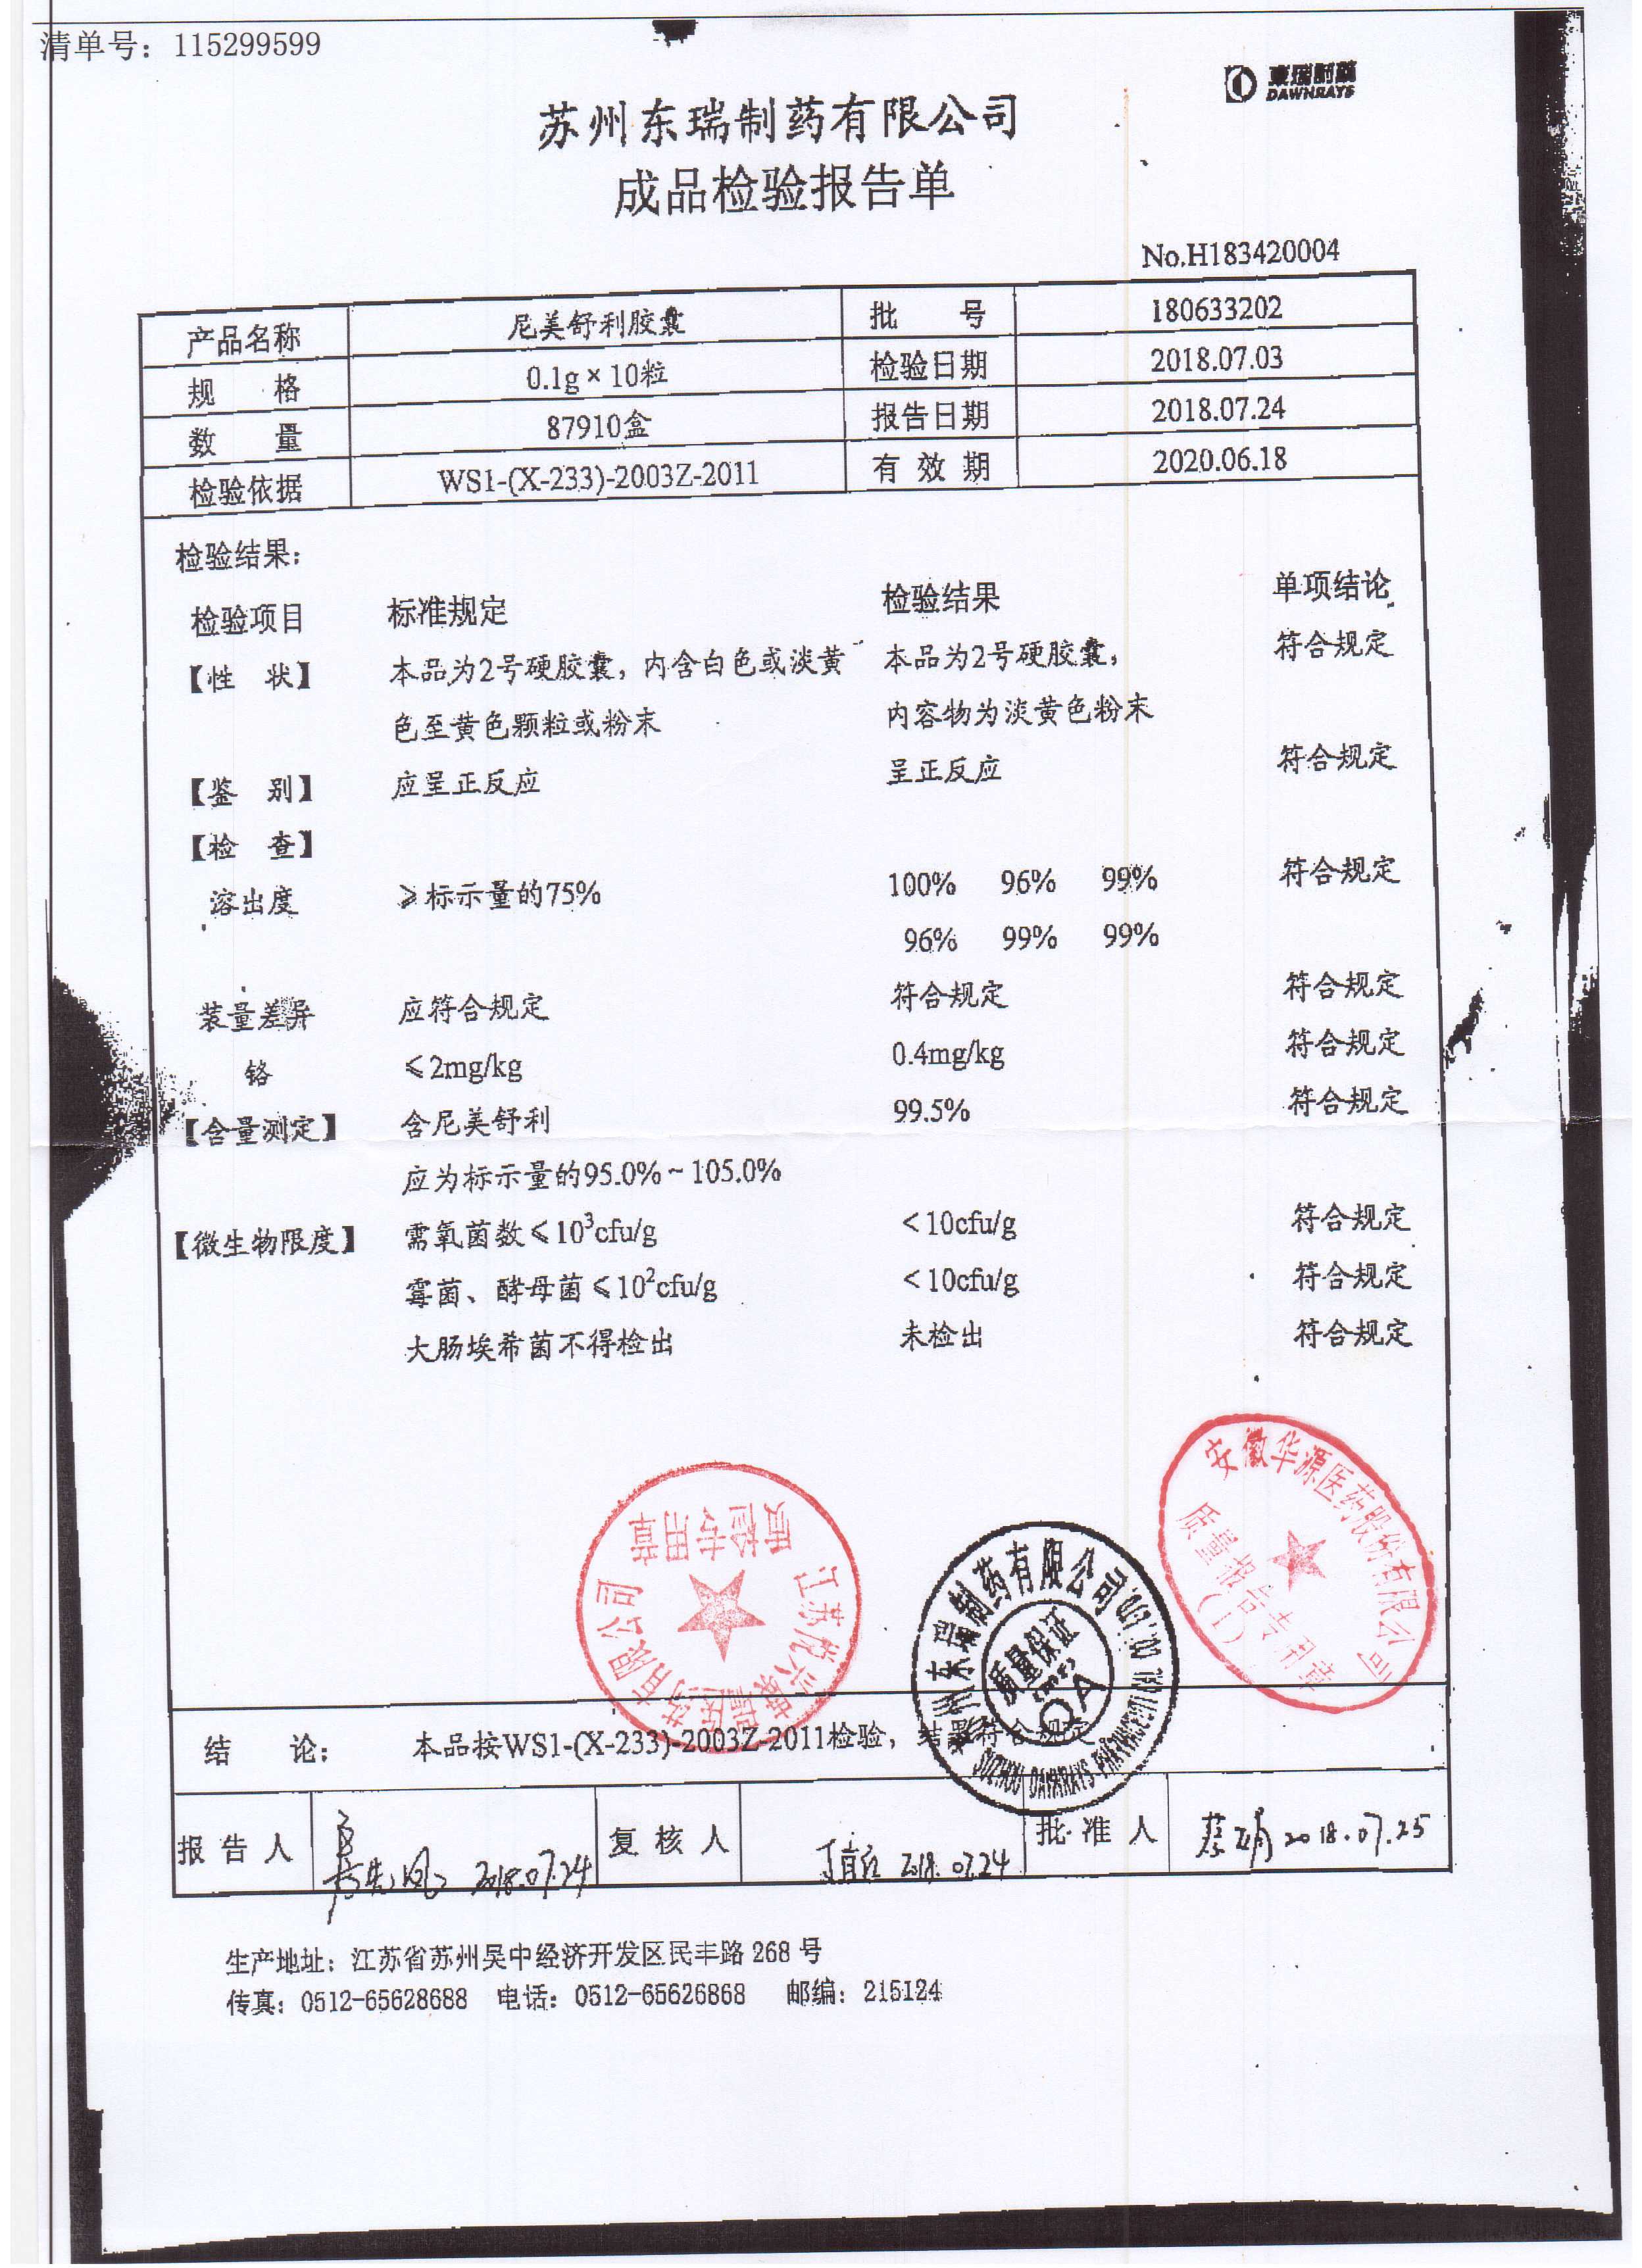 清单号：115299599
東瑞制藥
DAWNRAYS
苏州东瑞制药有限公司
成品检验报告单
No.H183420004
产品名称 尼美舒利胶囊 批 号 180633202
规 格 0.1g×10粒 检验日期 2018.07.03
数 量 87910盒 报告日期 2018.07.24
检验依据 WS1-(X-233)-2003Z-2011 有 效 期 2020.06.18
检验结果：
检验项目 标准规定 检验结果 单项结论
【性 状】 本品为2号硬胶囊，内含白色或淡黄 本品为2号硬胶囊， 符合规定
色至黄色颗粒或粉末 内容物为淡黄色粉末
【鉴 别】 应呈正反应 呈正反应 符合规定
【检 查】
溶出度 ≥标示量的75% 100% 96% 99% 符合规定
96% 99% 99%
装量差异 应符合规定 符合规定 符合规定
铬 ≤2mg/kg 0.4mg/kg 符合规定
【含量测定】 含尼美舒利 99.5% 符合规定
应为标示量的95.0%~105.0%
【微生物限度】 需氧菌数≤10³cfu/g <10cfu/g 符合规定
霉菌、酵母菌≤10²cfu/g <10cfu/g 符合规定
大肠埃希菌不得检出 未检出 符合规定
安徽华源医药股份有限公司
质量报告专用章
(1)
质检专用章
苏州东瑞制药有限公司
质量保证
QA
SUZHOU DAWNRAYS PHARMACEUTICAL CO.,LTD.
结 论： 本品按WS1-(X-233)-2003Z-2011检验，结果符合规定
报 告 人 2018.07.24 复 核 人 2018.07.24 批 准 人 2018.07.25
生产地址：江苏省苏州吴中经济开发区民丰路 268 号
传真：0512-65628688 电话：0512-65626868 邮编：215124